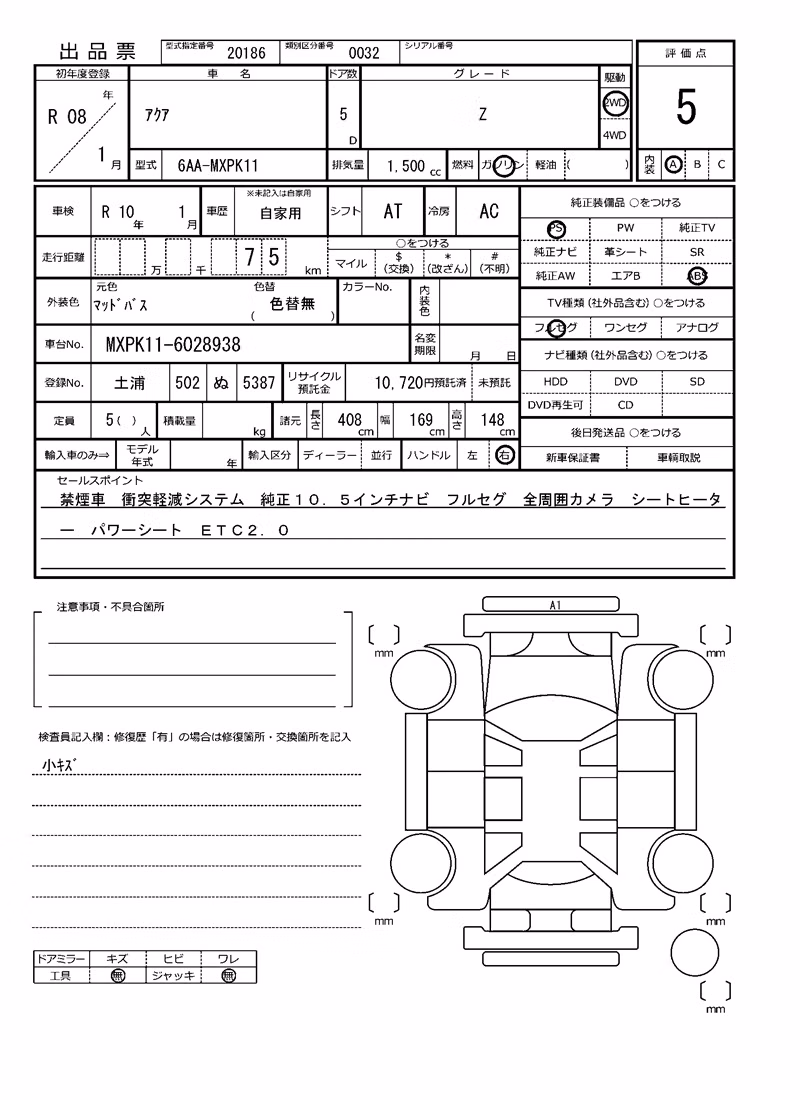 出品票 型式指定番号 20186 類別区分番号 0032 シリアル番号
評価点
初年度登録 車名 ドア数 グレード 駆動
R 08 年 1 月 アクア 5 D Z 2WD 4WD
5
型式 6AA-MXPK11 排気量 1,500 cc 燃料 ガソリン 軽油 ( )
内装 A B C
車検 R 10 年 1 月 車歴 ※未記入は自家用 自家用 シフト AT 冷房 AC
純正装備品 ○をつける
PS PW 純正TV
走行距離 万 千 7 5 km ○をつける
マイル $ (交換) * (改ざん) # (不明)
純正ナビ 革シート SR
純正AW エアB ABS
外装色 元色 マッドバス 色替 ( 色替無 ) カラーNo. 内装色
TV種類(社外品含む)○をつける
フルセグ ワンセグ アナログ
車台No. MXPK11-6028938 名変期限 月 日
ナビ種類(社外品含む)○をつける
登録No. 土浦 502 ぬ 5387 リサイクル預託金 10,720円預託済 未預託
HDD DVD SD
DVD再生可 CD
定員 5( )人 積載量 kg 諸元 長さ 408 cm 幅 169 cm 高さ 148 cm
後日発送品 ○をつける
輸入車のみ⇒ モデル年式 年 輸入区分 ディーラー 並行 ハンドル 左 右
新車保証書 車輌取説
セールスポイント
禁煙車 衝突軽減システム 純正10.5インチナビ フルセグ 全周囲カメラ シートヒータ
ー パワーシート ETC2.0
注意事項・不具合箇所
A1
mm mm
検査員記入欄：修復歴「有」の場合は修復箇所・交換箇所を記入
小キズ
mm mm
ドアミラー キズ ヒビ ワレ
工具 無 ジャッキ 無
mm